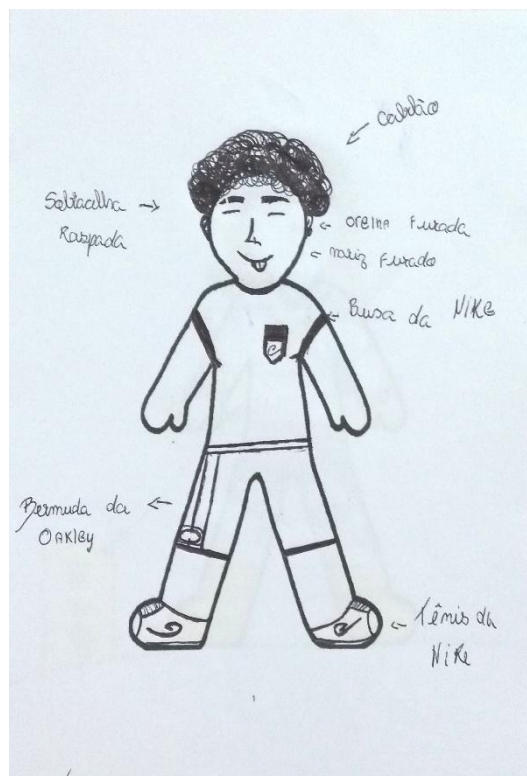 Cabelão
Sobracelha
Raspada
Orelha Furada
nariz Furado
Busa da NIKE
Bermuda da
OAKley
Tênis da
NiKe